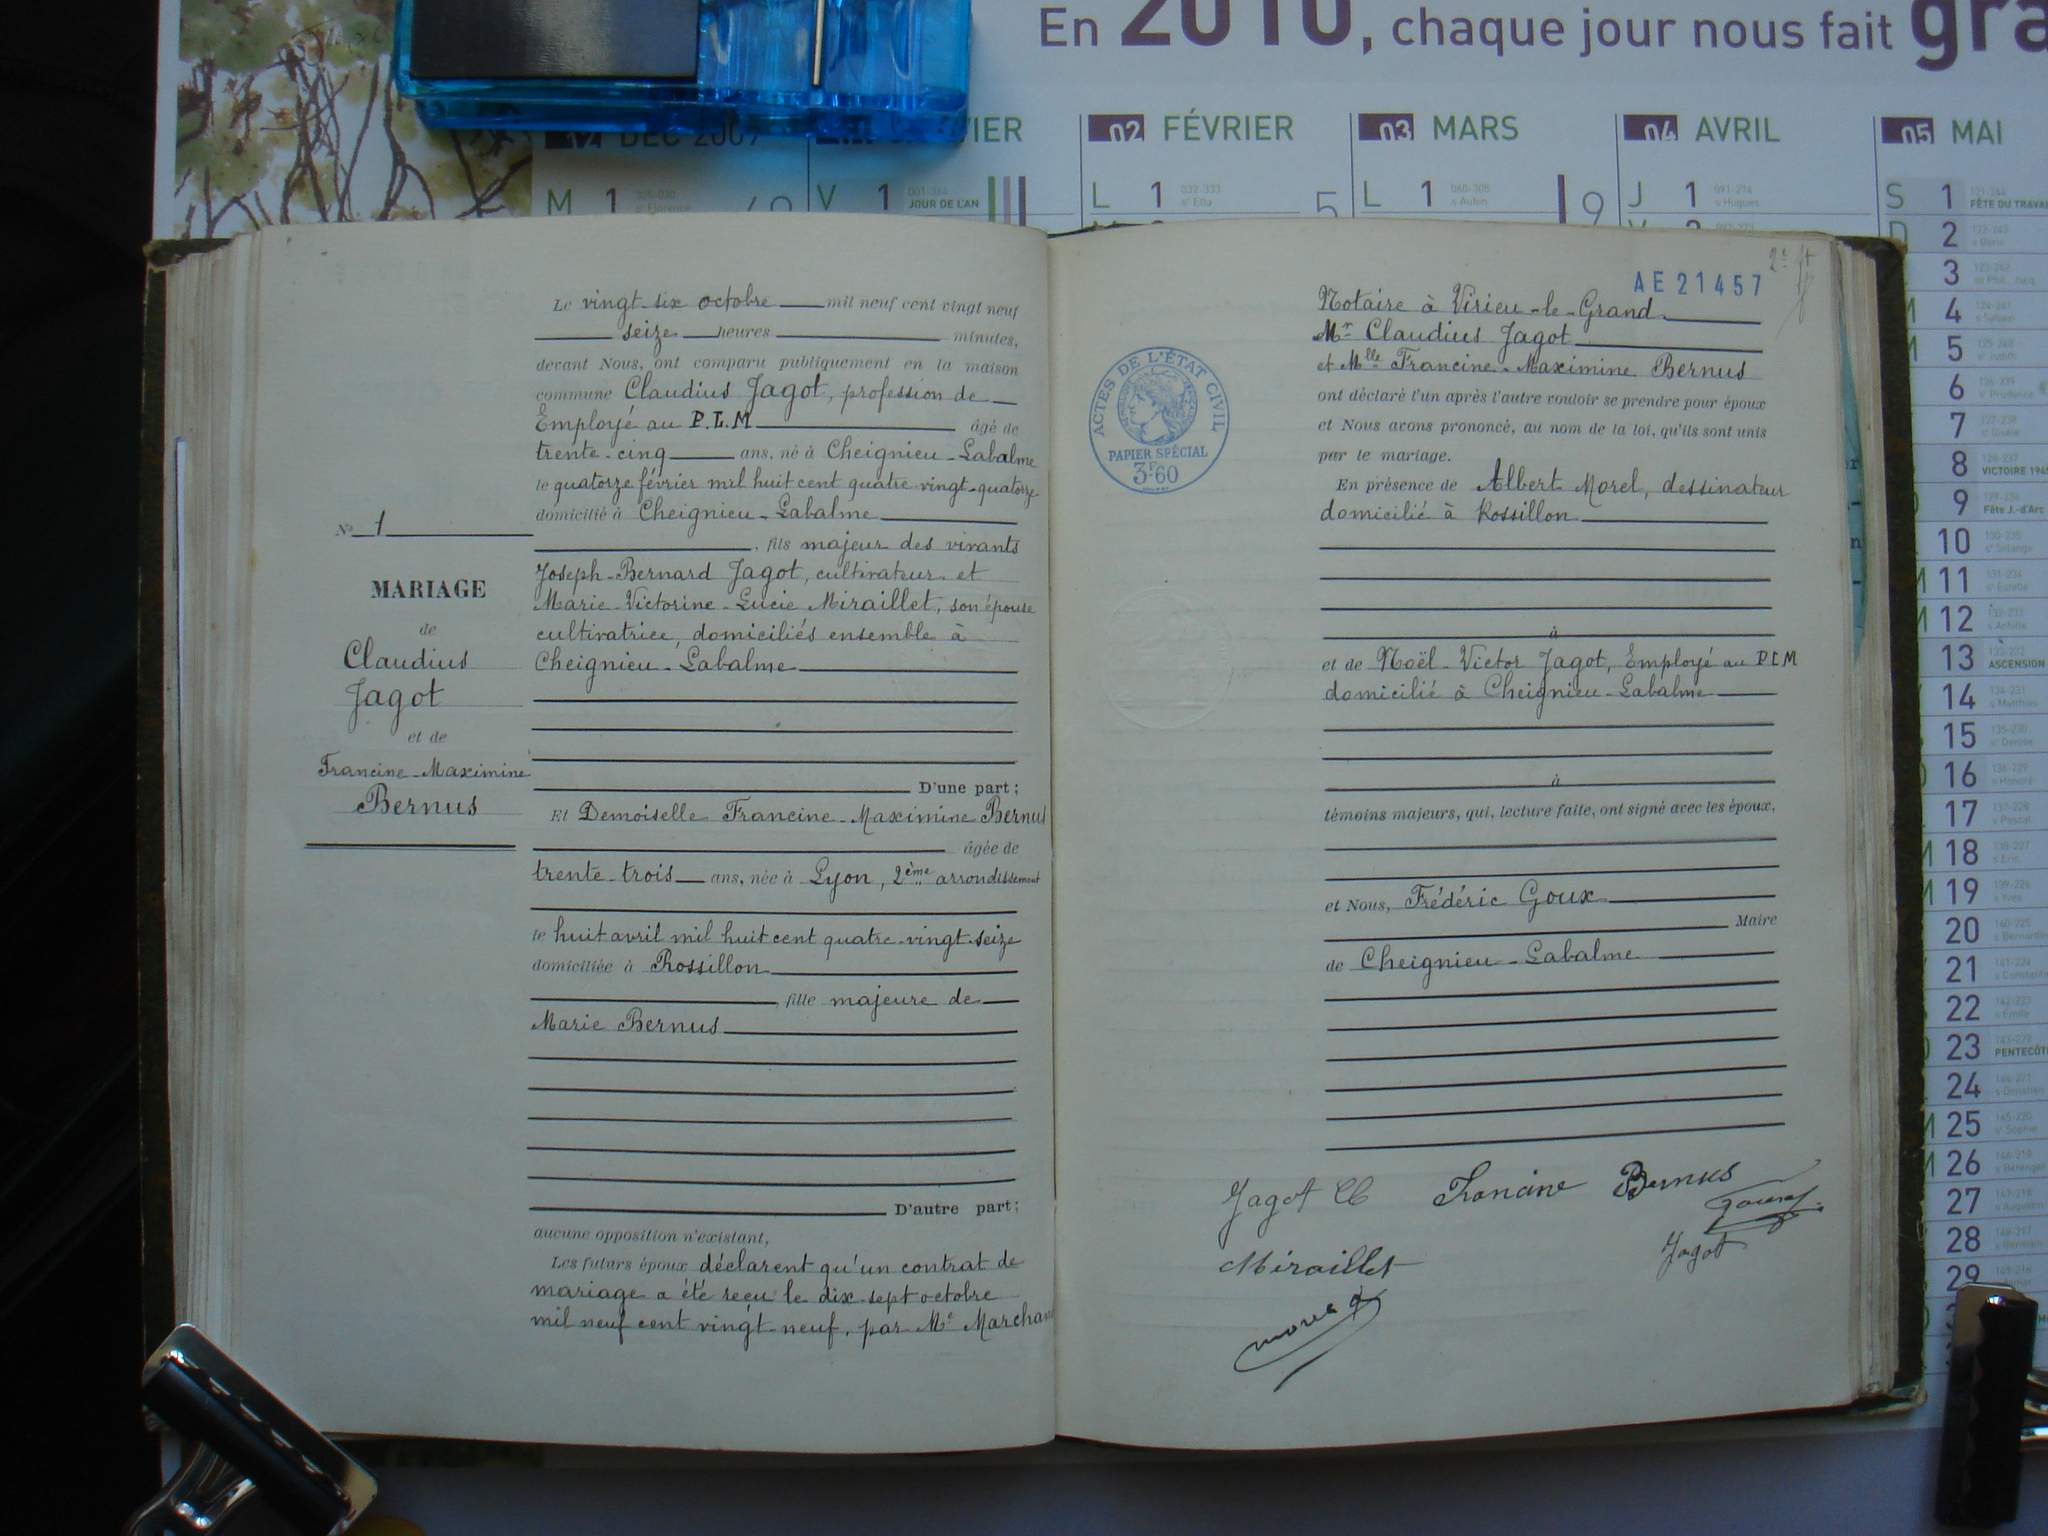 En 2010, chaque jour nous fait gra
12 DÉC 2009
VIER
02 FÉVRIER
03 MARS
04 AVRIL
05 MAI
M 1
V 1 001-364 JOUR DE L'AN
L 1 032-333 ste Ella 5
L 1 060-305 s Aubin 9
J 1 091-274 s Hugues
S 1 121-244 FÊTE DU TRAVA
D 2
3
4
5
6
7
8 VICTOIRE 1945
9 Fête J.-d'Arc
10
11
12
13 ASCENSION
14
15
16
17
18
19
20
21
22
23 PENTECÔT
24
25
26
27
28
29
N° 1
MARIAGE
de
Claudius
Jagot
et de
Francine-Maximine
Bernus
Le vingt-six octobre mil neuf cent vingt neuf
seize heures minutes,
devant Nous, ont comparu publiquement en la maison
commune Claudius Jagot, profession de
Employé au P.L.M âgé de
trente-cinq ans, né à Cheignieu-Labalme
le quatorze février mil huit cent quatre-vingt-quatorze
domicilié à Cheignieu-Labalme
, fils majeur des vivants
Joseph-Bernard Jagot, cultivateur et
Marie-Victorine-Lucie Miraillet, son épouse
cultivatrice, domiciliés ensemble à
Cheignieu-Labalme
D'une part;
Et Demoiselle Francine-Maximine Bernus
âgée de
trente-trois ans, née à Lyon, 2ème arrondissement
le huit avril mil huit cent quatre-vingt-seize
domiciliée à Rossillon
, fille majeure de
Marie Bernus
D'autre part;
aucune opposition n'existant,
Les futurs époux déclarent qu'un contrat de
mariage a été reçu le dix-sept octobre
mil neuf cent vingt-neuf, par Me Marchan
AE21457
2e ft
ACTES DE L'ÉTAT CIVIL
PAPIER SPÉCIAL
3F60
Notaire à Virieu-le-Grand
Mr Claudius Jagot
et Mlle Francine-Maximine Bernus
ont déclaré l'un après l'autre vouloir se prendre pour époux
et Nous avons prononcé, au nom de la loi, qu'ils sont unis
par le mariage.
En présence de Albert Morel, dessinateur
domicilié à Rossillon
à
et de Noël-Victor Jagot, Employé au P.L.M
domicilié à Cheignieu-Labalme
à
témoins majeurs, qui, lecture faite, ont signé avec les époux,
et Nous, Frédéric Goux
Maire
de Cheignieu-Labalme
Jagot Cl Francine Bernus
Miraillet Jagot